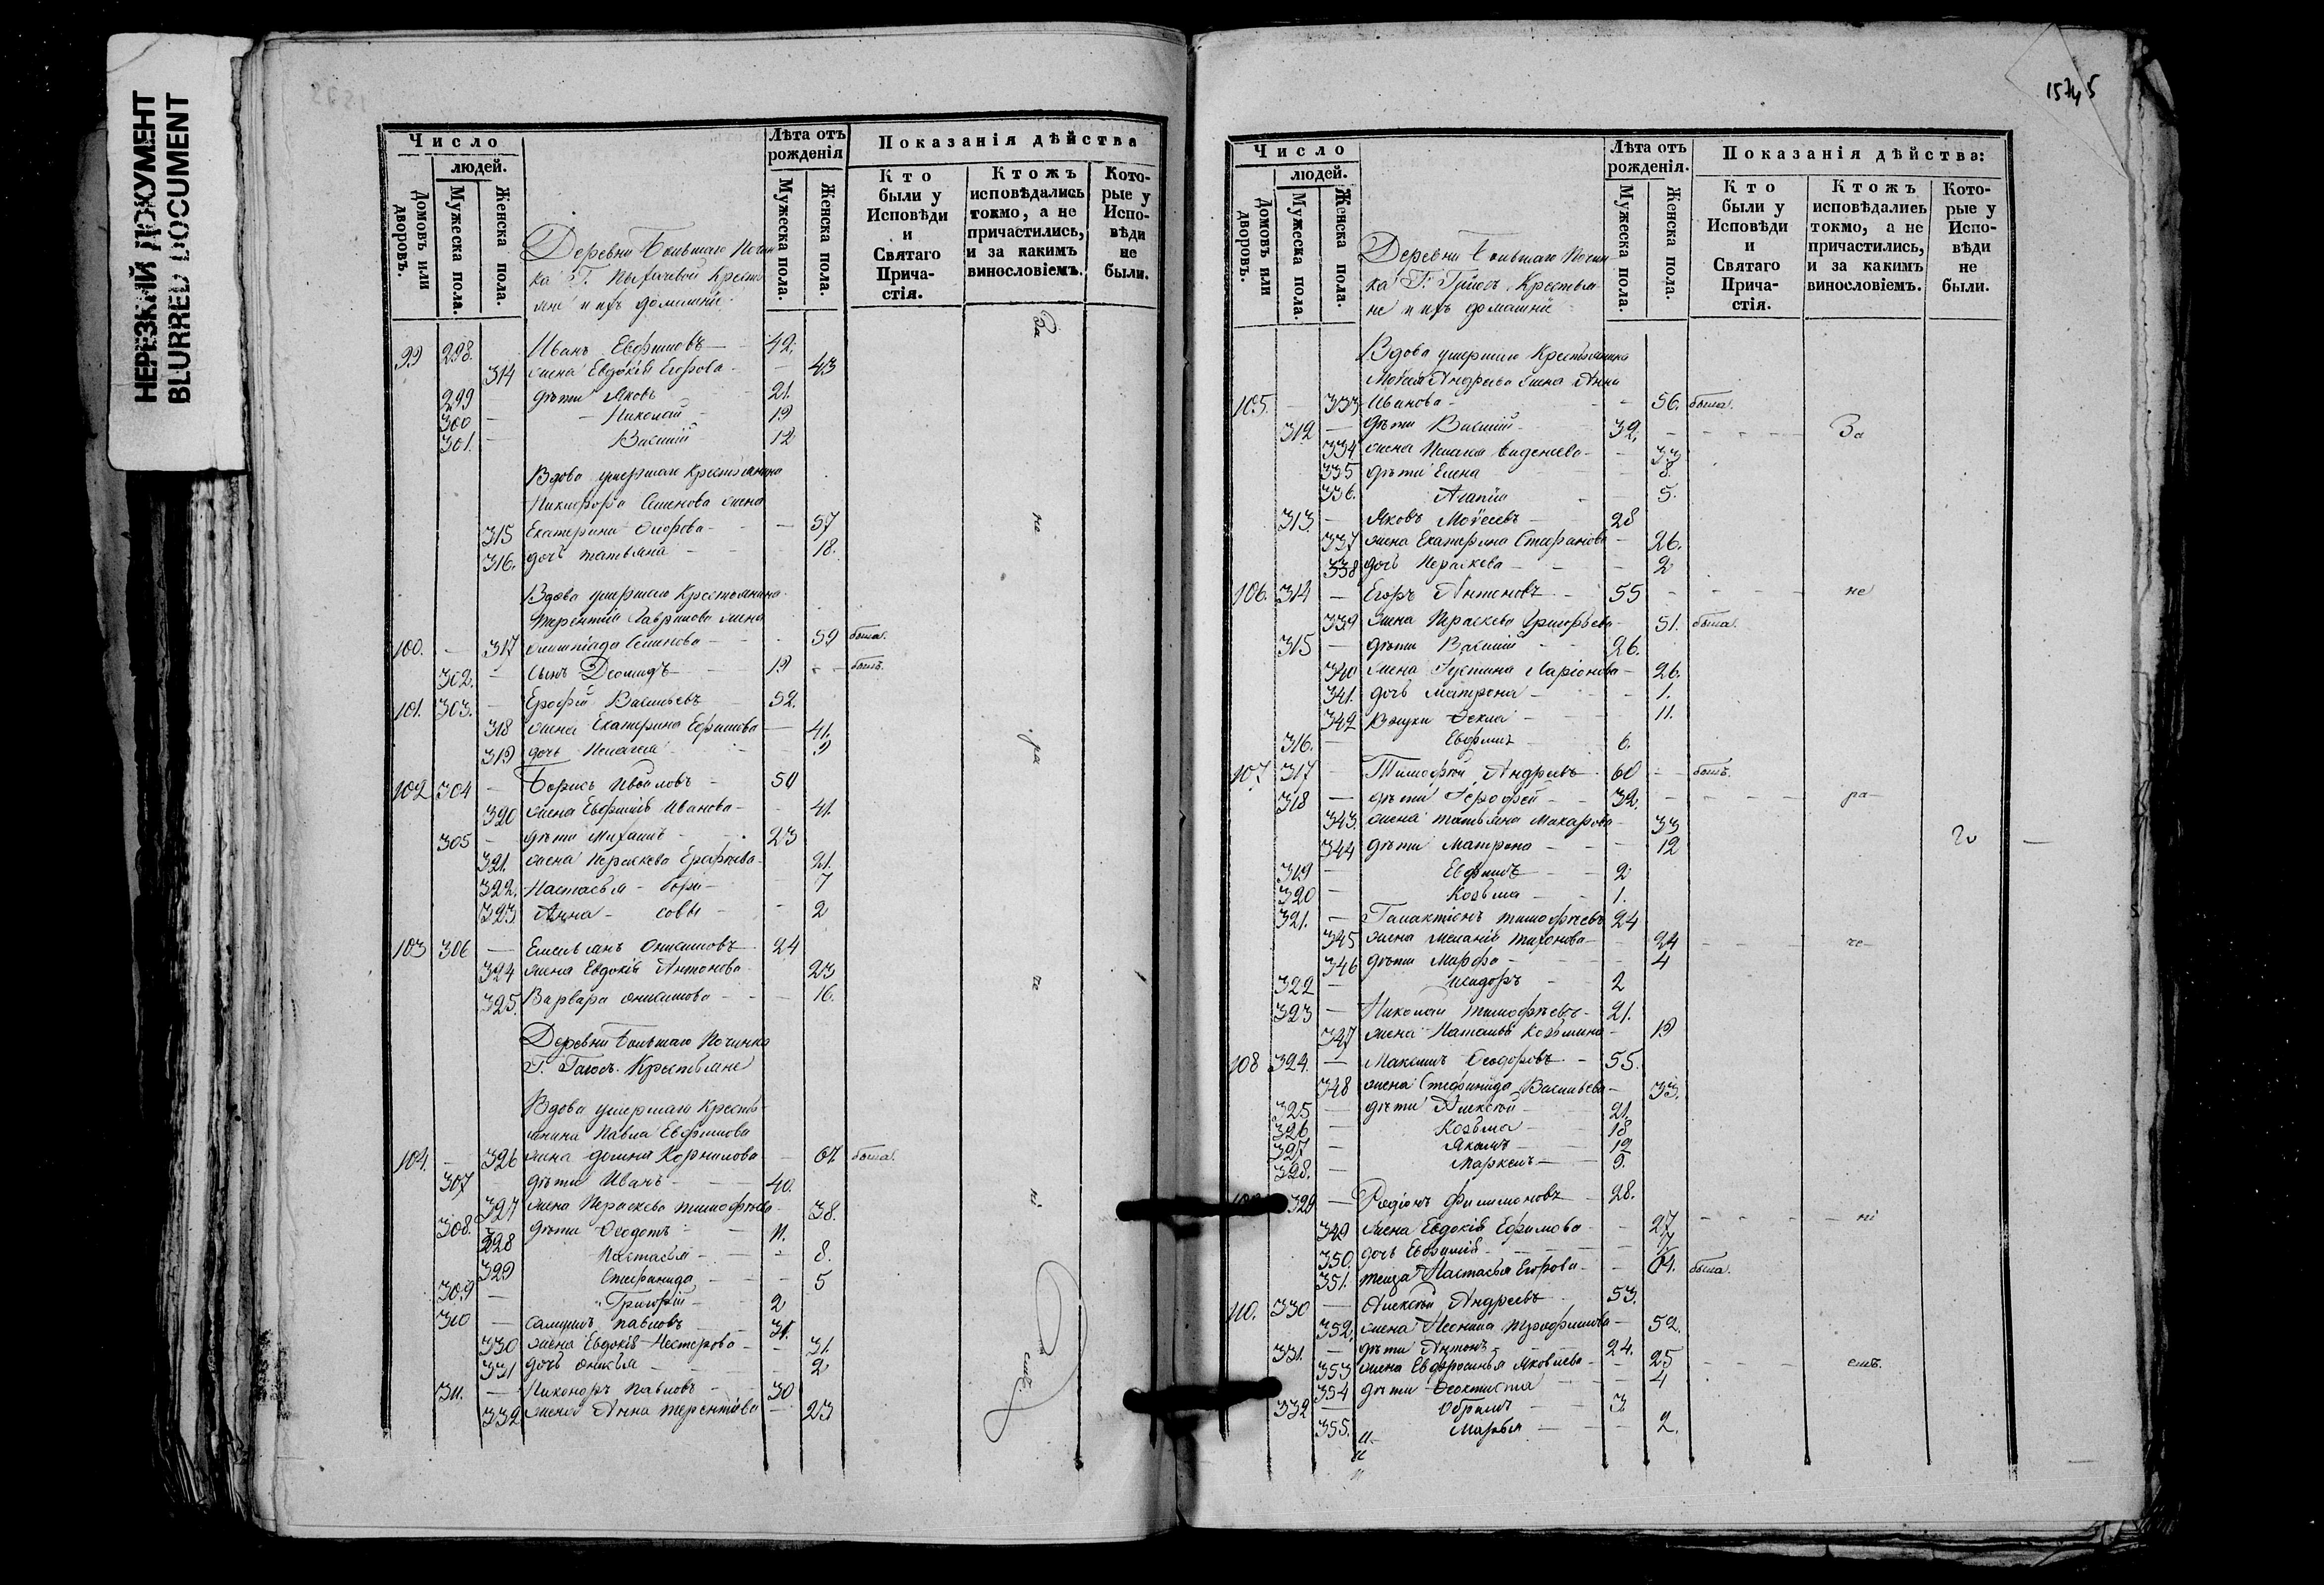 НЕРЕЗКИЙ ДОКУМЕНТ
BLURRED DOCUMENT
Число
людей.
Домовъ или дворовъ.
Мужеска пола.
Женска пола.
Лѣта отъ рожденія
Мужеска пола.
Женска пола.
Показанія дѣйства
Кто были у Исповѣди и Святаго Прича-стія.
Ктожъ исповѣдались токмо, а не причастились, и за какимъ винословіемъ.
Кото-рые у Испо-вѣди не были.
Деревни Большаго Почин
ка Г. Крестья
не и ихъ домашніи
99 298. Иванъ Евфимовъ 42.
314 жена Евдокія Егорова 43
299 дѣти Яковъ 21.
300 Николай 19
301. Василій 12
Вдова умершаго Крестьянина
Никифора Семенова жена
315 Екатерина 57
316. дочь Татьяна 18.
Вдова умершаго Крестьянина
Терентія Гаврилова жена
100. 317 Семенова 59 была.
302. сынъ Діомидъ 19 былъ.
101. 303. Ерофѣй Васильевъ 52.
318 жена Екатерина Ефимова 41.
319 дочь Пелагея 9
102 304 Борисъ 50
320 жена Евфимія Иванова 41.
305 дѣти Михаилъ 23
321. жена Параскева Ерофѣева 21.
322. Настасья Бори 7
323 Анна совы 2
103 306 Емельянъ Онисимовъ 24
324 жена Евдокія Антонова 23
325. Варвара Онисимова 16.
Деревни Большаго Починка
Г. Крестьяне
Вдова умершаго Кресть
янина Павла Евфимова
104. 326 жена Домна Корнилова 67 была.
307 дѣти Иванъ 40.
327 жена Параскева Тимофѣева 38.
308. дѣти Ѳеодотъ 11.
328 Настасья 8.
329 Стефанида 5
309 Григорій 2
310 Самуилъ Павловъ 31.
330 жена Евдокія Нестерова 31.
331 дочь Онисья 2
311. Никоноръ Павловъ 30
332 жена Анна Терентіева 23
За
не
ра
че
ні
емъ.
1574
5
Число
людей.
Домовъ или дворовъ.
Мужеска пола.
Женска пола.
Лѣта отъ рожденія.
Мужеска пола.
Женска пола.
Показанія дѣйства:
Кто были у Исповѣди и Святаго Прича-стія.
Ктожъ исповѣдались токмо, а не причастились, и за какимъ винословіемъ.
Кото-рые у Испо-вѣди не были.
Деревни Большаго Почин
ка Г. Крестья
не и ихъ домашніи
Вдова умершаго Крестьянина
Моѵсея Андреева жена Анна
105. 333 Иванова 56. была.
312 дѣти Василій 32. За
334 жена 33
335 дѣти Елена 8.
336. Агапія 5.
313 Яковъ Моѵсеевъ 28
337 жена Екатерина Стефанова 26.
338 дочь Параскева 2
106. 314 Егоръ Антоновъ 55 не
339 жена Параскева Григорьева 51. была.
315 дѣти Василій 26.
340 жена Іустина Ларіонова 26.
341. дочь Матрона 1.
342 внуки Ѳекла 11.
316. Евфимъ 6.
107. 317 Тимофѣй Андреевъ 60 былъ.
318 дѣти Іерофей 32. ра
343. жена Татьяна Макарова 33
344 дѣти Матрона 12
319 Евфимъ 2
320 Козьма 1.
321. Галактіонъ Тимофѣевъ 24
345 жена Меланія Тихонова 24 че
346 дѣти Марфа 4
322 Исидоръ 2
323 Николай Тимофѣевъ 21.
347 жена Наталья Козьмина 19
108 324. Максимъ Ѳеодоровъ 55.
348 жена Стефанида Васильева 33.
325 дѣти Алексѣй 21.
326 Козьма 18
327 Якимъ 12
328. Маркелъ 9.
329 Родіонъ Филимоновъ 28.
349 жена Евдокія Ефимова 27 ні
350. дочь Евфимія 7
351. теща Настасья Егорова 64. была.
110. 330 Алексѣй Андреевъ 53.
352. жена Трофимова 52.
331. дѣти Антонъ 24.
353 жена Евфросинья Яковлева 25 емъ.
354 дѣти Ѳеоктиста 4
332 3
355. Марья 2.